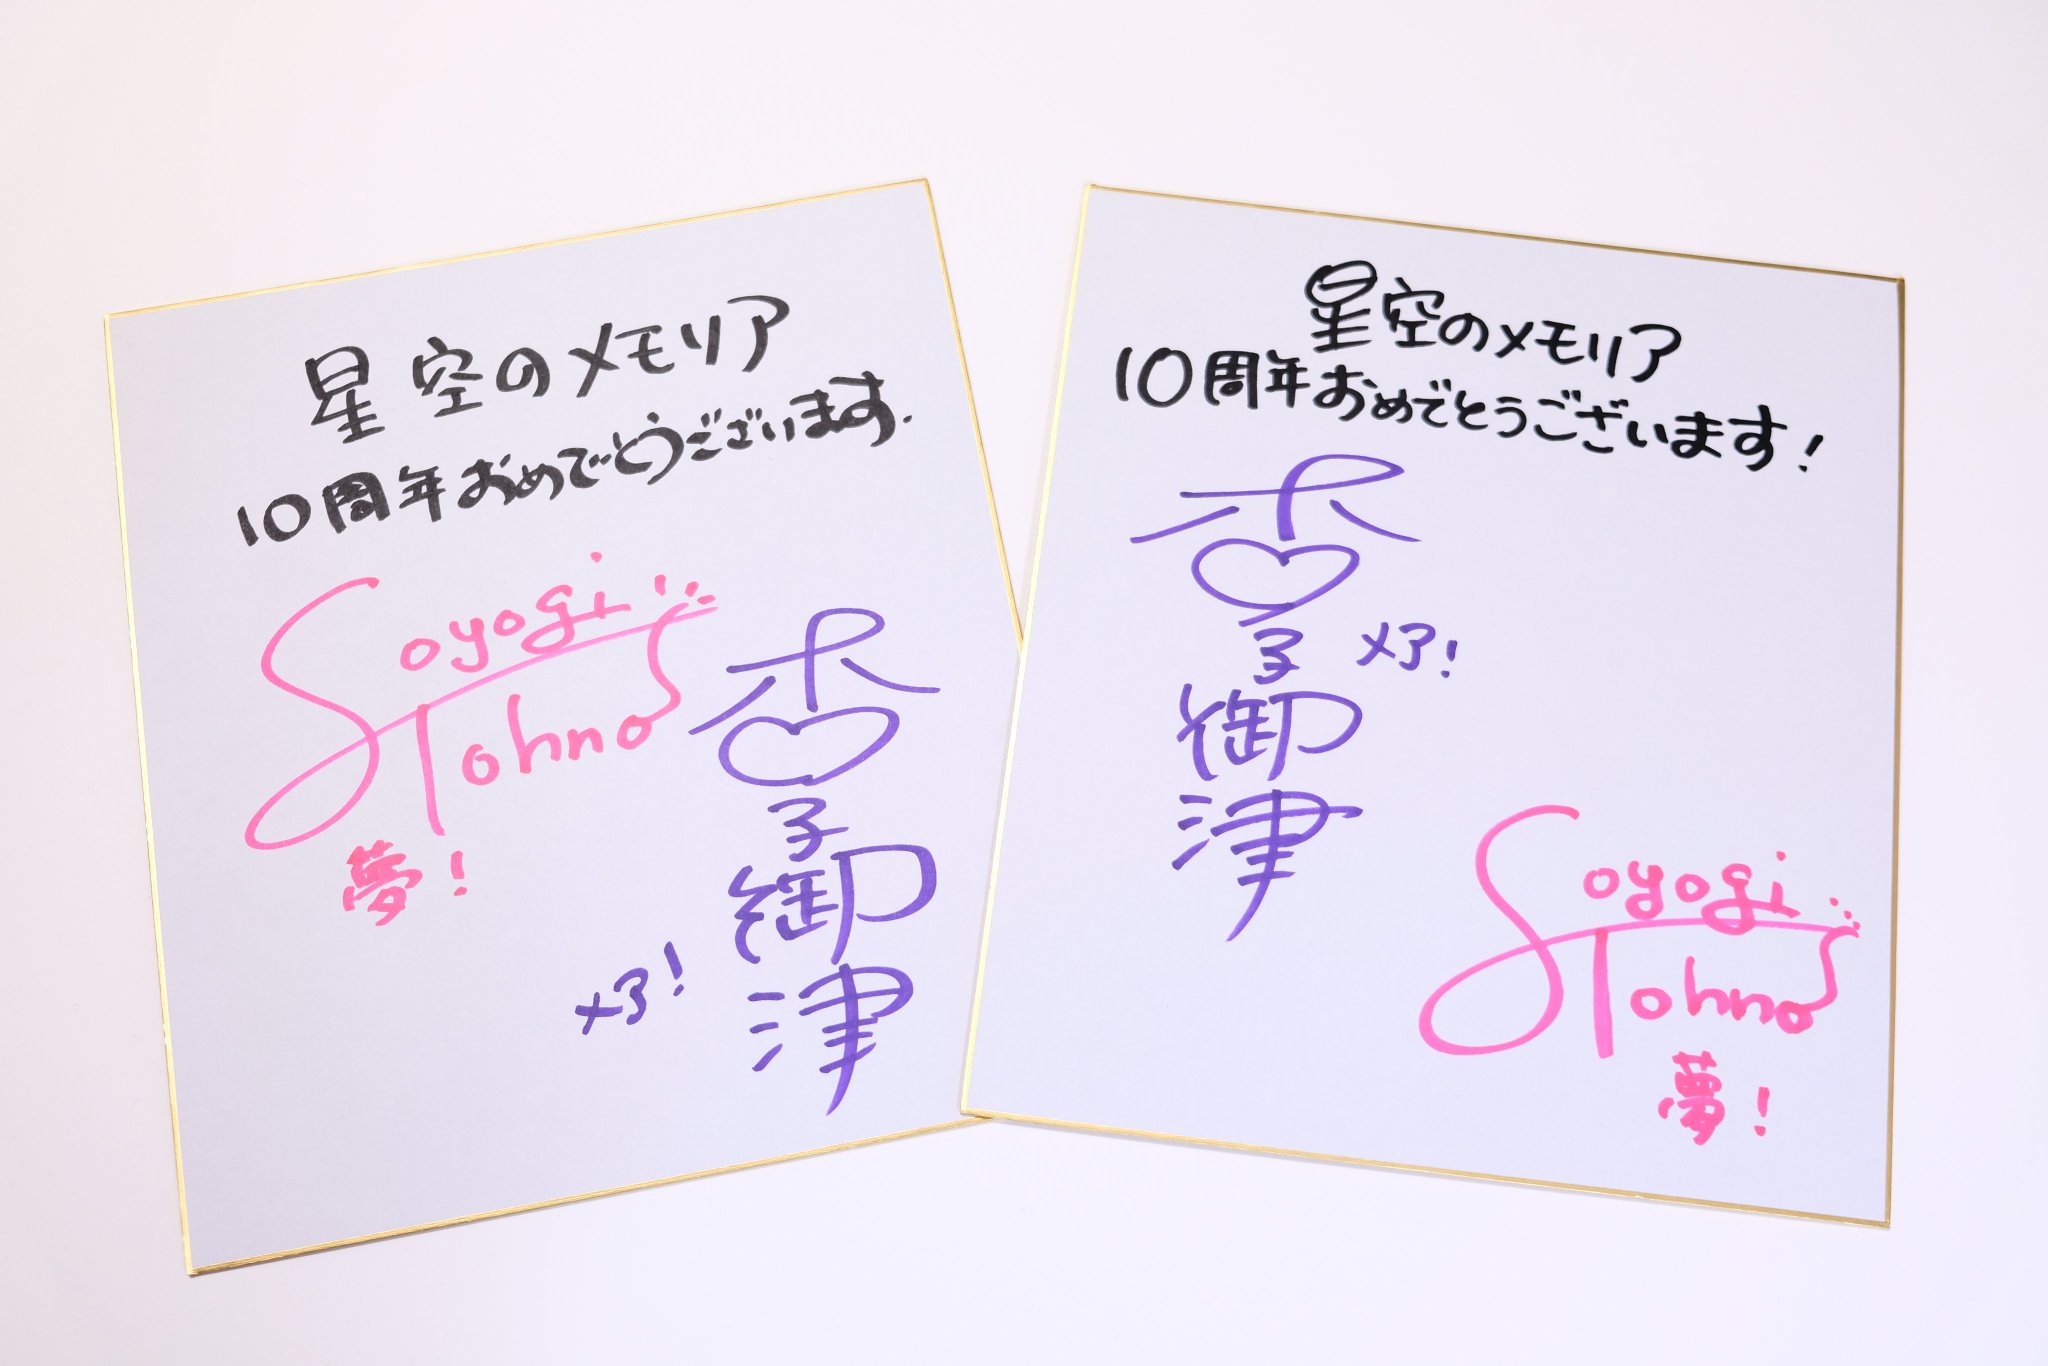 星空のメモリア
10周年おめでとうございます.
Soyogi
Tohno
夢!
香子御津
メア!
星空のメモリア
10周年おめでとうございます!
香子御津
メア!
Soyogi
Tohno
夢!